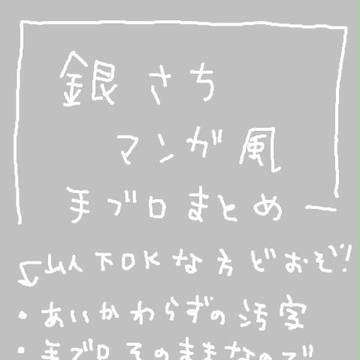 銀さち
マンガ風
手ブロまとめー
↓以下OKな方どおぞ!
・あいかわらずの汚字
・手ブロそのままなので